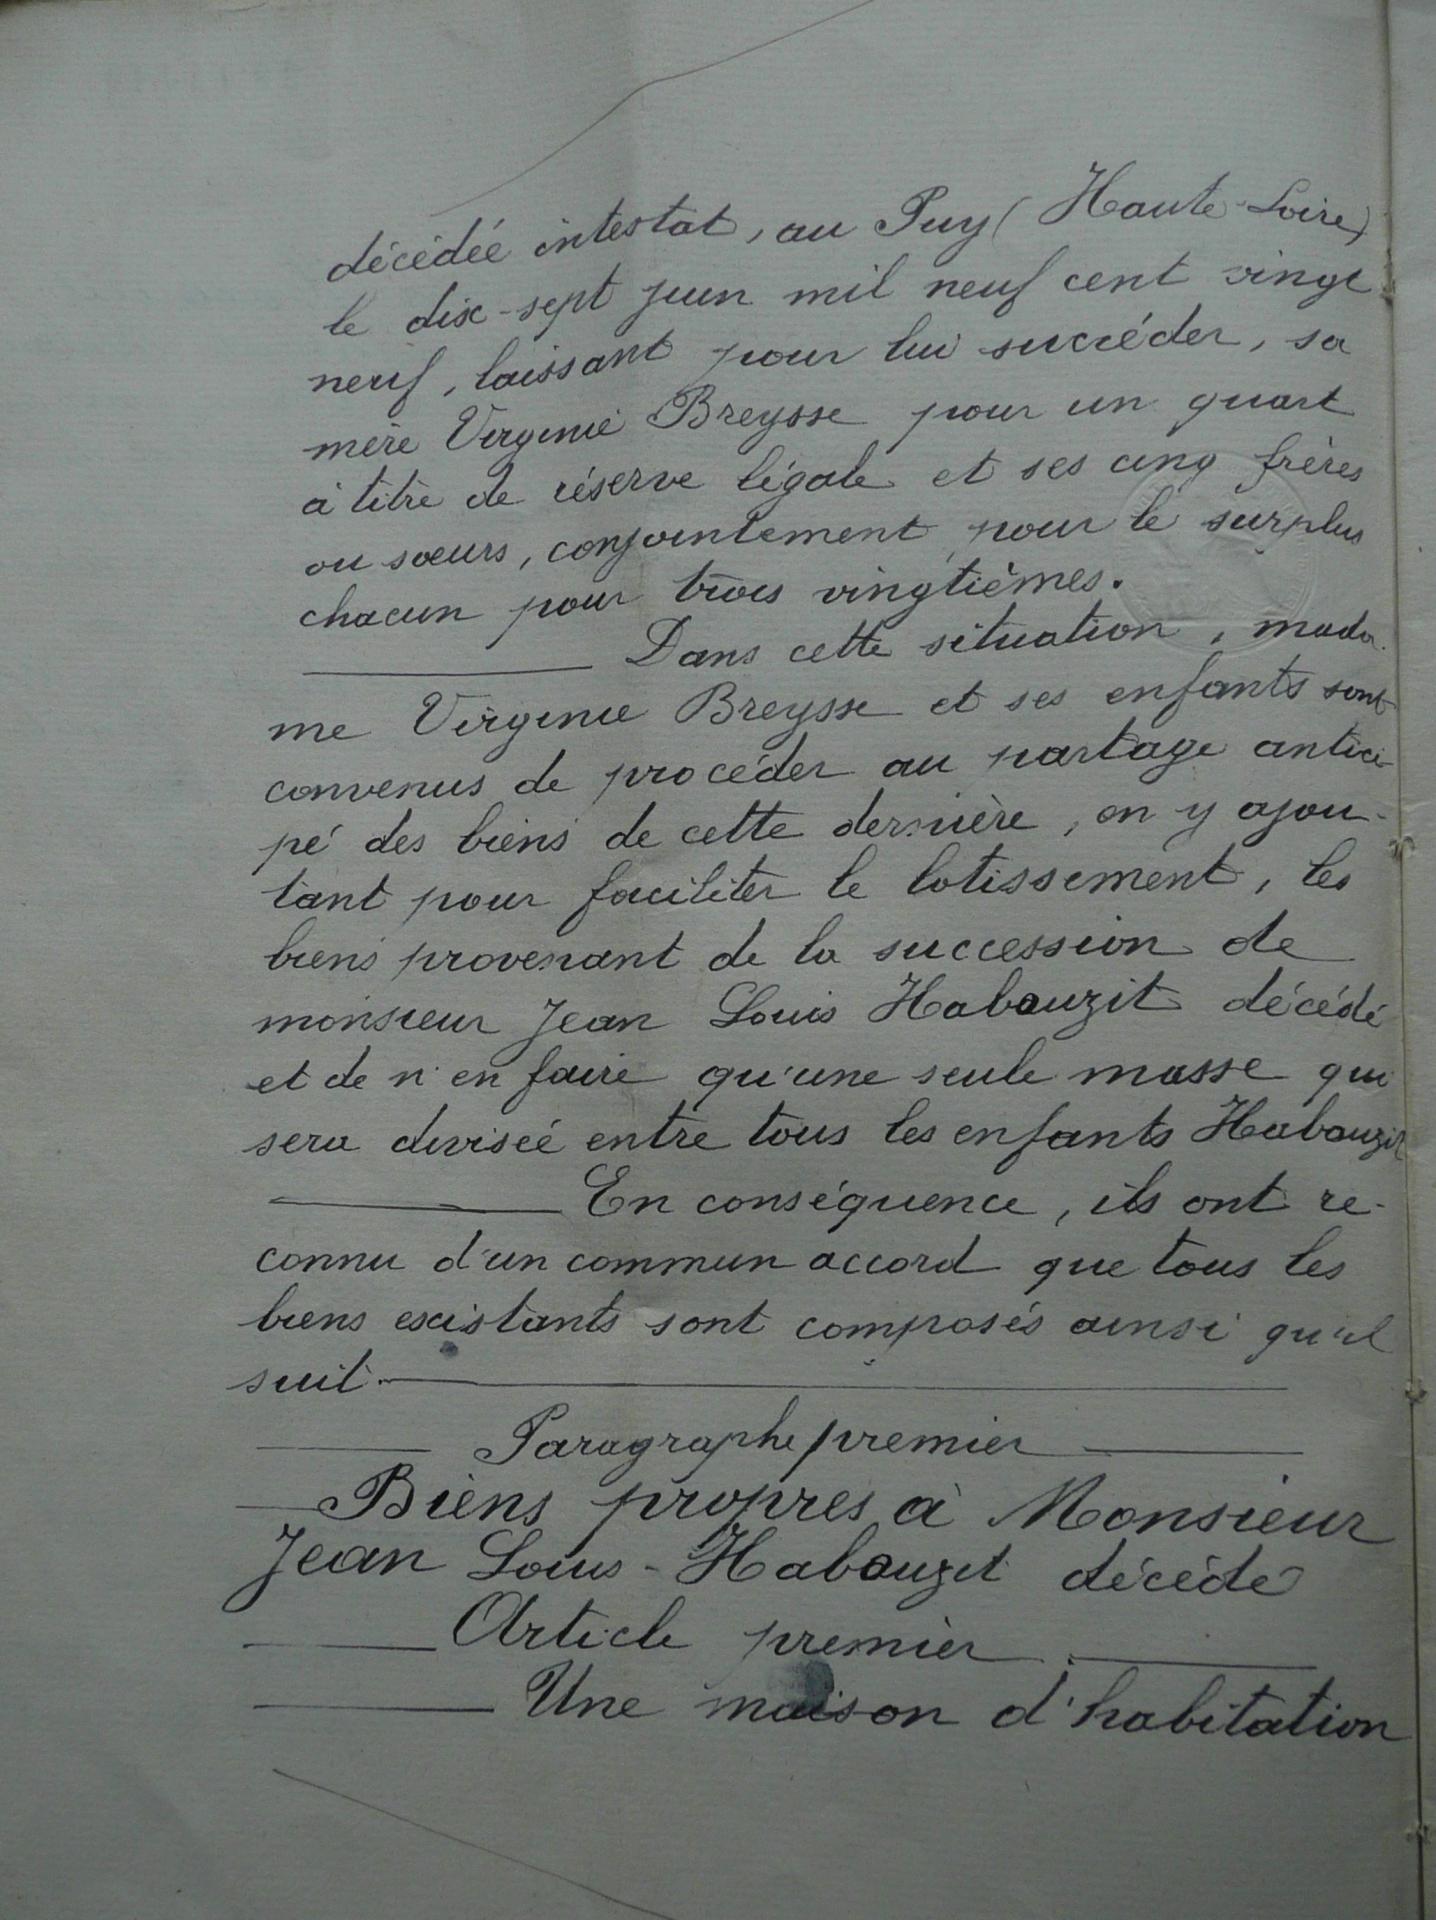 décédée intestat, au Puy (Haute-Loire)
le dix-sept juin mil neuf cent vingt
neuf, laissant pour lui succéder, sa
mère Virginie Breysse pour un quart
à titre de réserve légale et ses cinq frères
ou sœurs, conjointement pour le surplus
chacun pour trois vingtièmes.
Dans cette situation, mada-
me Virginie Breysse et ses enfants sont
convenus de procéder au partage antici-
pé des biens de cette dernière, en y ajou-
tant pour faciliter le lotissement, les
biens provenant de la succession de
monsieur Jean Louis Habouzit décédé
et de n'en faire qu'une seule masse qui
sera divisée entre tous les enfants Habouzit
En conséquence, ils ont re-
connu d'un commun accord que tous les
biens existants sont composés ainsi qu'il
suit.
Paragraphe premier
Biens propres à Monsieur
Jean Louis-Habouzit décédé
Article premier
Une maison d'habitation